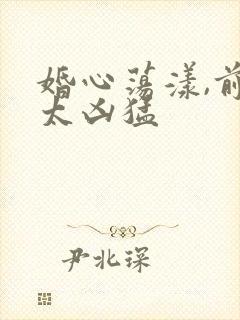 婚心荡漾,前
太凶猛
尹北琛